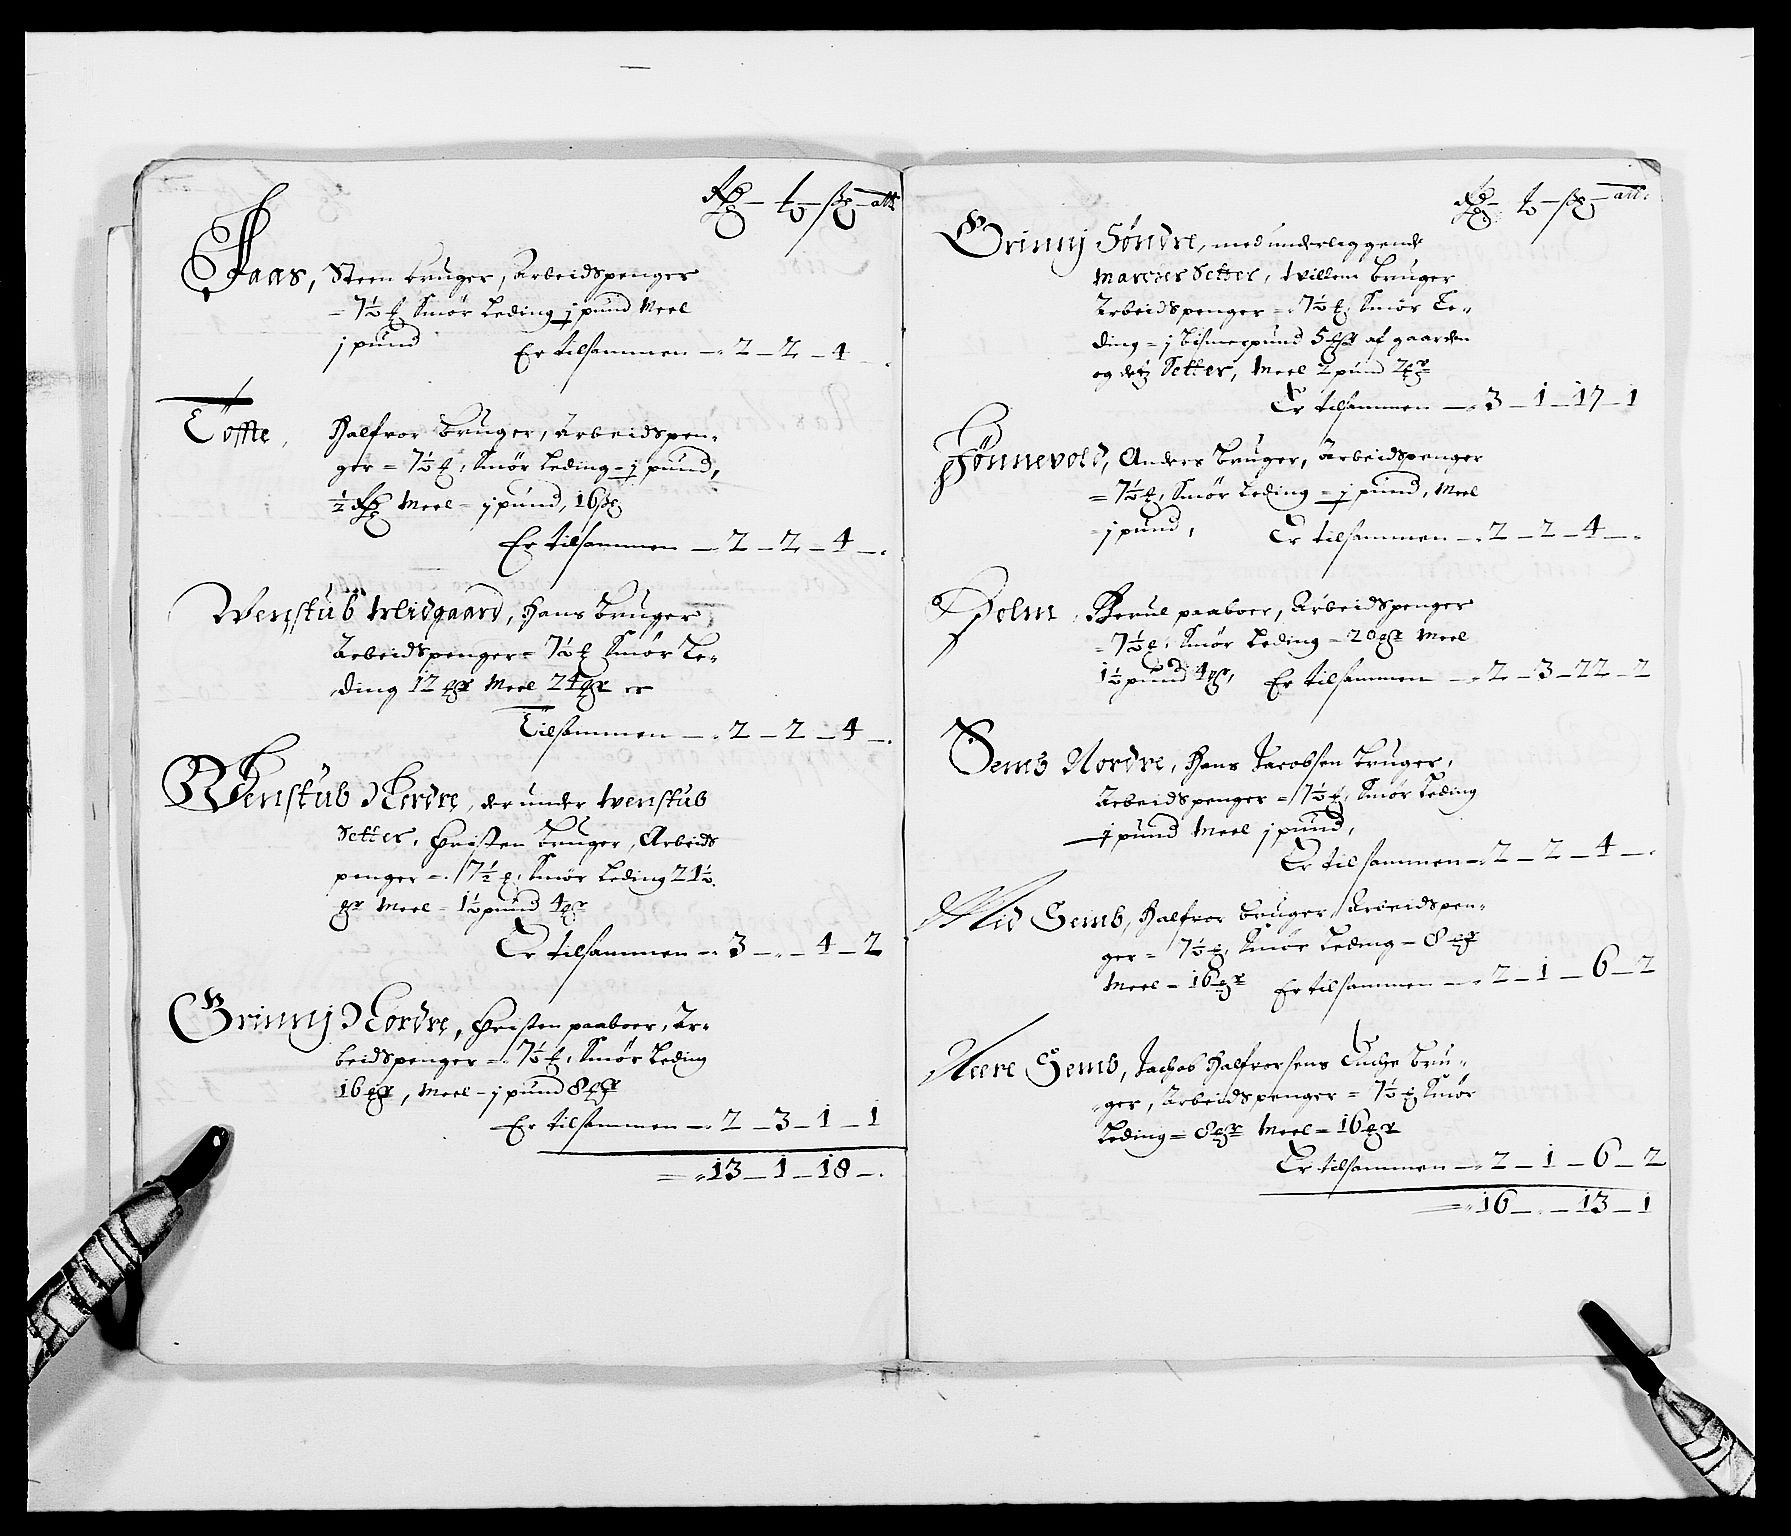 Rdr — t — sk — alb
Faas, Steen bruger, Arbeidspenger
= 7½ t Smør Leding j pund Meel
j pund Er tilsammen — 2 — 2 — 4 —
Tøffte, Halfvor Bruger, Arbeidspen-
ger = 7½ t, Smør Leding = j pund,
½ Rdr Meel - j pund, 16 sk
Er tilsammen — 2 — 2 — 4 —
Wenstub Weidgaard, Hans Bruger
Arbeidspenger = 7½ t Smør Le-
ding 12 mr Meel 24 mr er
Tilsammen — 2 — 2 — 4 —
Wenstub Nordre, der under Wenstub
Setter, Christen Bruger, Arbeids
penger = 7½ t, Smør Leding 21½
mr Meel - 1½ pund 4 mr
Er tilsammen — 3 — " — 4 — 2
Grinnj Nordre, Christen paaboer, Ar-
beidspenger = 7½ t, Smør Leding
16 mr, Meel - j pund 8 mr
Er tilsammen — 2 — 3 — 1 — 1
= 13 — 1 — 18 —
Rdr — t — sk — alb:
Grinnj Søndre, med underliggende
Marcher Setter, Willem Bruger
Arbeidspenger = 7½ t, Smør Le-
ding = j Bismerpund 5 mr af gaarden
og dets Setter, Meel 2 pund 2 mr
Er tilsammen — 3 — 1 — 17 — 1
Fønnevold, Anders Bruger, Arbeidspenger
= 7½ t, Smør Leding = j pund, Meel
- j pund, Er tilsammen — 2 — 2 — 4 —
Holm, Berul paaboer, Arbeidspenger
= 7½ t, Smør Leding - 20 mr Meel
1½ pund 4 mr, Er tilsammen — 2 — 3 — 22 — 2
Semb Nordre, Hans Jacobsen Bruger,
Arbeidspenger = 7½ t, Smør Leding
- j pund Meel j pund,
Er tilsammen — 2 — 2 — 4 —
Mid Semb, Halfvor Bruger, Arbeidspen-
ger = 7½ t, Smør Leding - 8 mr
Meel - 16 mr Er tilsammen — 2 — 1 — 6 — 2
Neere Semb, Jachob Halfvorsens Enche Bru-
ger, Arbeidspenger = 7½ t Smør
Leding = 8 mr Meel - 16 mr
Er tilsammen — 2 — 1 — 6 — 2
= 16 — " — 13 — 1